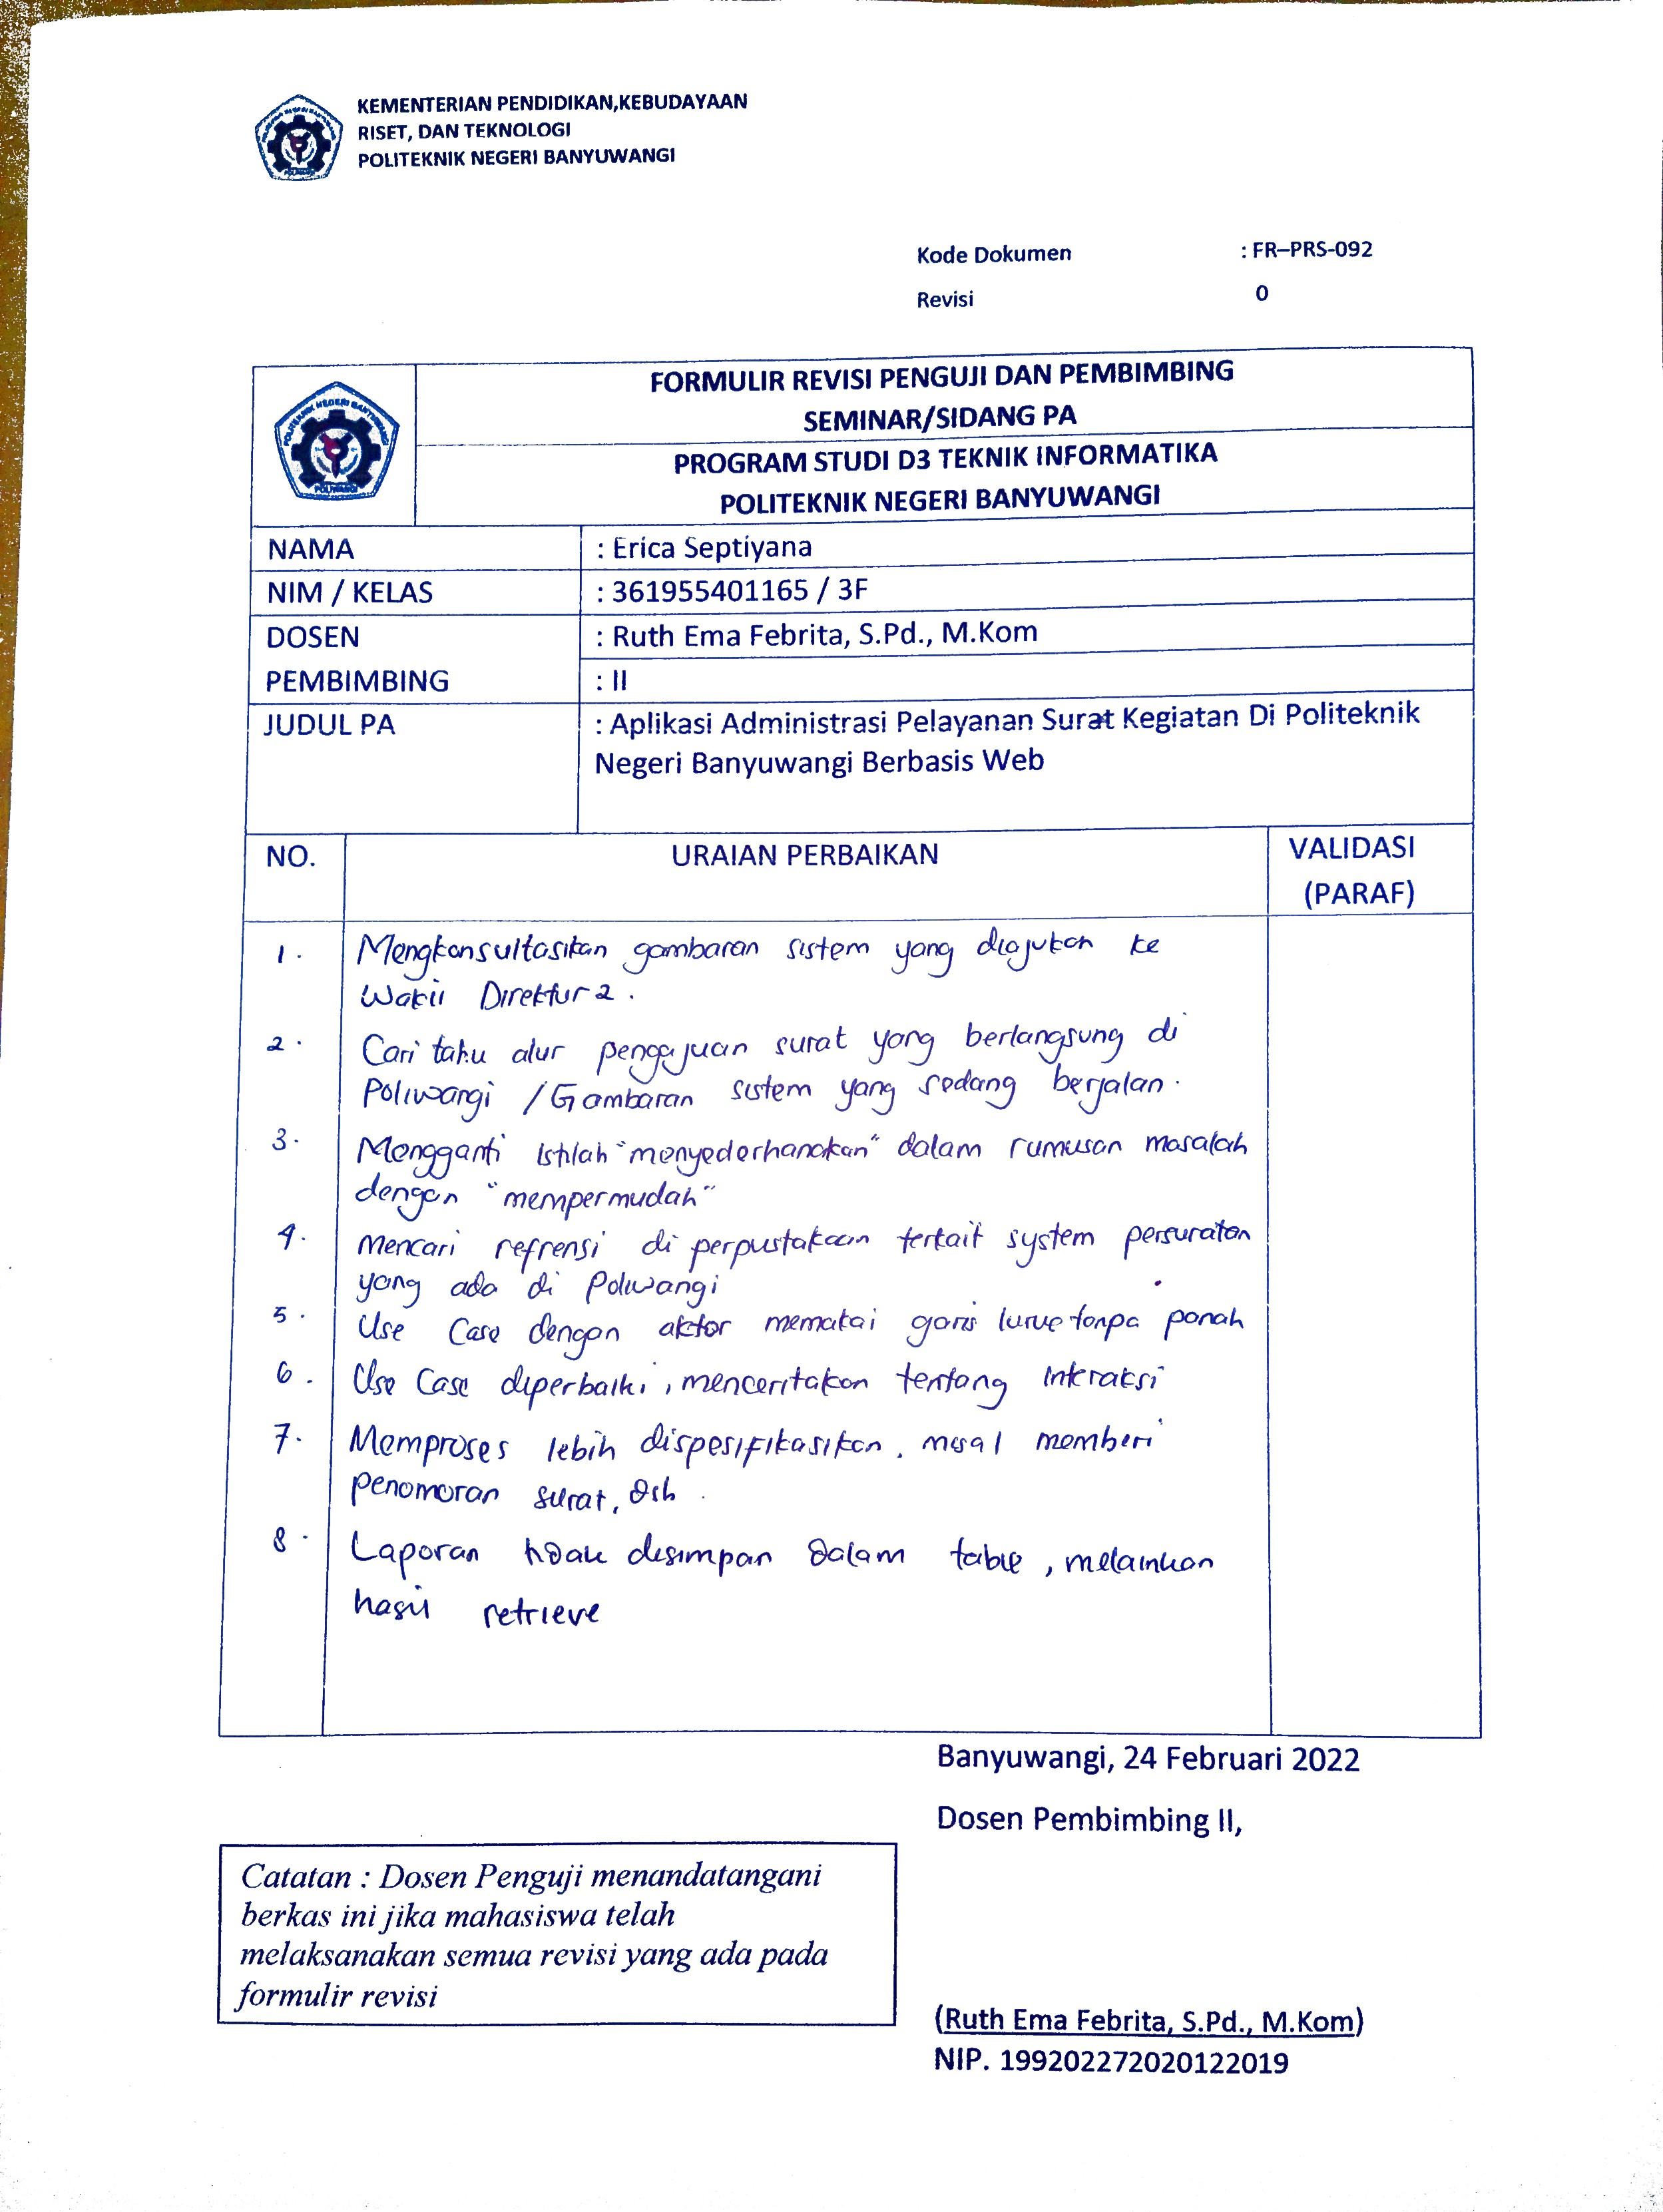 KEMENTERIAN PENDIDIKAN,KEBUDAYAAN
RISET, DAN TEKNOLOGI
POLITEKNIK NEGERI BANYUWANGI
Kode Dokumen : FR–PRS-092
Revisi 0
FORMULIR REVISI PENGUJI DAN PEMBIMBING
SEMINAR/SIDANG PA
PROGRAM STUDI D3 TEKNIK INFORMATIKA
POLITEKNIK NEGERI BANYUWANGI
POLITEKNIK NEGERI BANYUWANGI
POLIWANGI
NAMA : Erica Septiyana
NIM / KELAS : 361955401165 / 3F
DOSEN : Ruth Ema Febrita, S.Pd., M.Kom
PEMBIMBING : II
JUDUL PA : Aplikasi Administrasi Pelayanan Surat Kegiatan Di Politeknik
Negeri Banyuwangi Berbasis Web
NO. URAIAN PERBAIKAN VALIDASI
(PARAF)
1. Mengkonsultasikan gambaran sistem yang diajukan ke
Wakil Direktur 2.
2. Cari tahu alur pengajuan surat yang berlangsung di
Poliwangi / Gambaran sistem yang sedang berjalan.
3. Mengganti istilah "menyederhanakan" dalam rumusan masalah
dengan "mempermudah"
4. Mencari refrensi di perpustakaan terkait system persuratan
yang ada di Poliwangi
5. Use Case dengan aktor memakai garis lurus tanpa panah
6. Use Case diperbaiki, menceritakan tentang interaksi
7. Memproses lebih dispesifikasikan. misal memberi
penomoran surat, dsb.
8. Laporan tidak disimpan dalam table, melainkan
hasil retrieve
Banyuwangi, 24 Februari 2022
Dosen Pembimbing II,
Catatan : Dosen Penguji menandatangani
berkas ini jika mahasiswa telah
melaksanakan semua revisi yang ada pada
formulir revisi
(Ruth Ema Febrita, S.Pd., M.Kom)
NIP. 199202272020122019